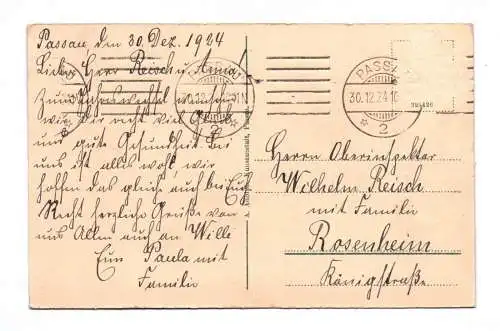 Passau, den 30. Dez. 1924
Liebe Herr Reisch u Anna!
Zum Jahreswechsel wünschen
wir Dir recht viel Glück
und gute Gesundheit bei
uns ist alles wohl, wir
hoffen das gleich auch bei Euch
Recht herzliche Grüße von
uns Allen auch an Willi
Eure Paula mit
Familie
PASSAU
30.12.24.10
2
Herrn Oberinspektor
Wilhelm Reisch
mit Familie
Rosenheim
Königstraße